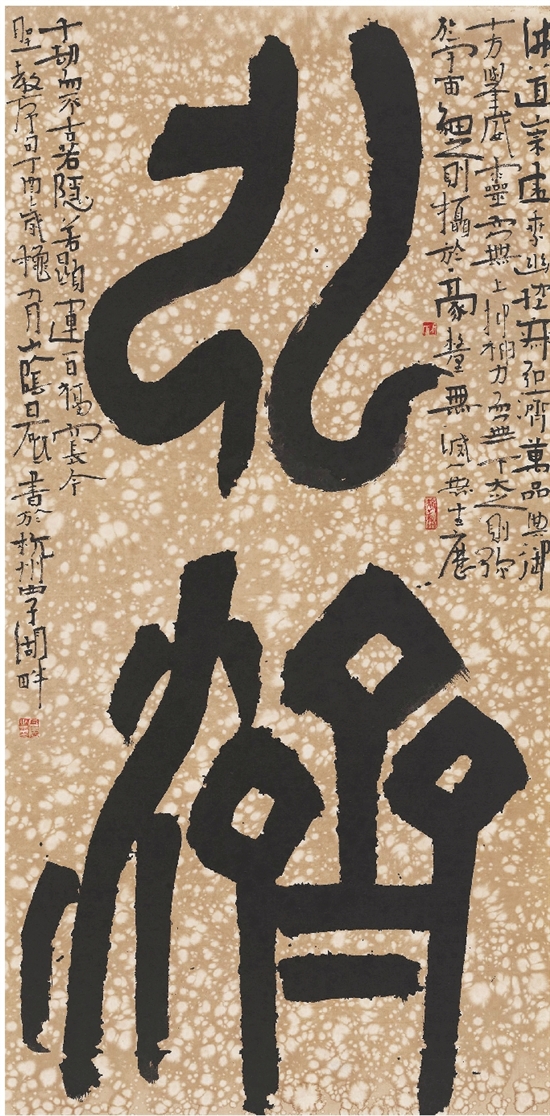 弘濟
佛道崇虛乘幽控寂弘濟萬品典御
十方舉威靈而無上抑神力而無下大之則彌
於宇宙細之則攝於毫釐無滅無生歷
千劫而不古若隱若顯運百福而長今
聖教序句丁酉歲穐月山陰白砥書於杭州西子湖畔